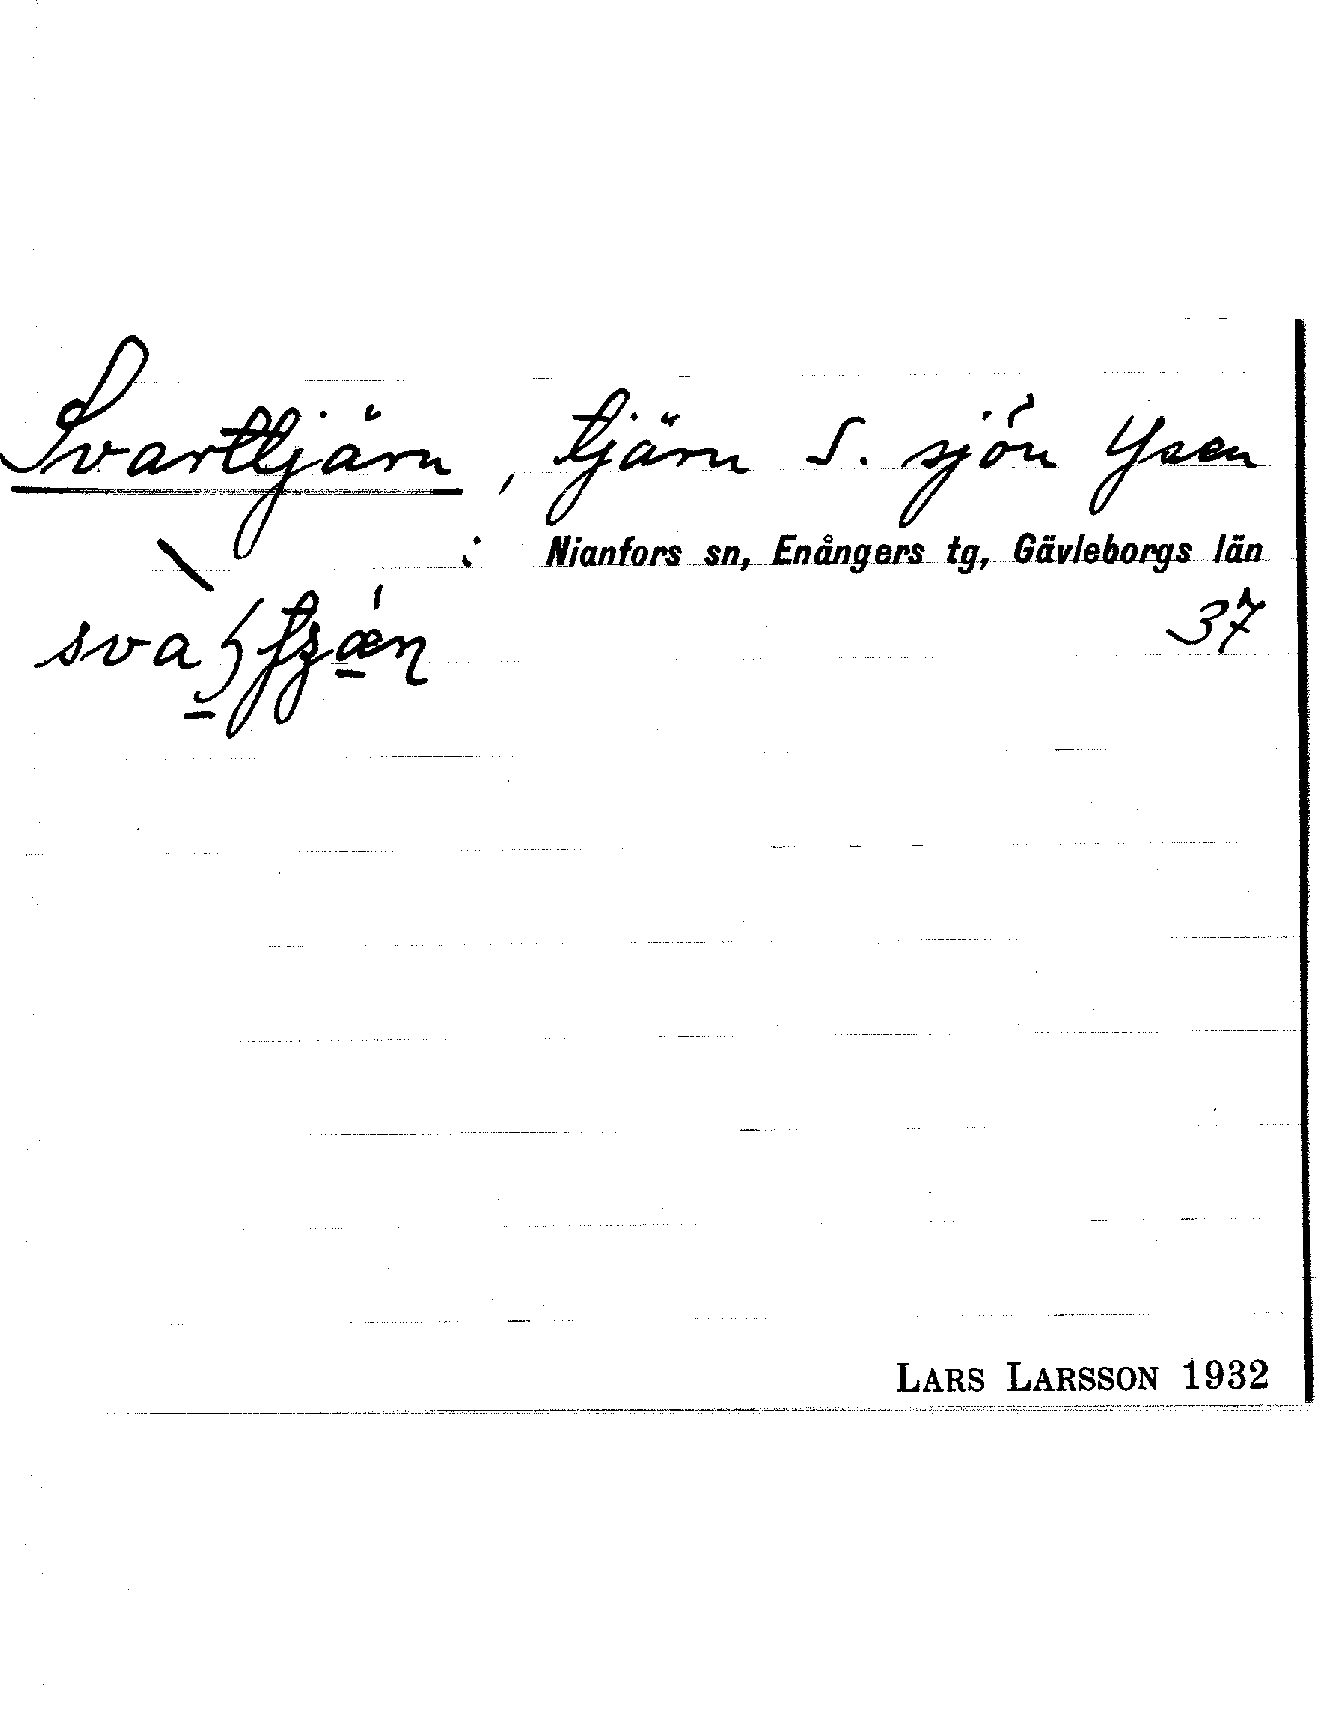 Svarttjärn, tjärn S. sjön Ysen
i Nianfors sn, Enångers tg, Gävleborgs län
37
LARS LARSSON 1932